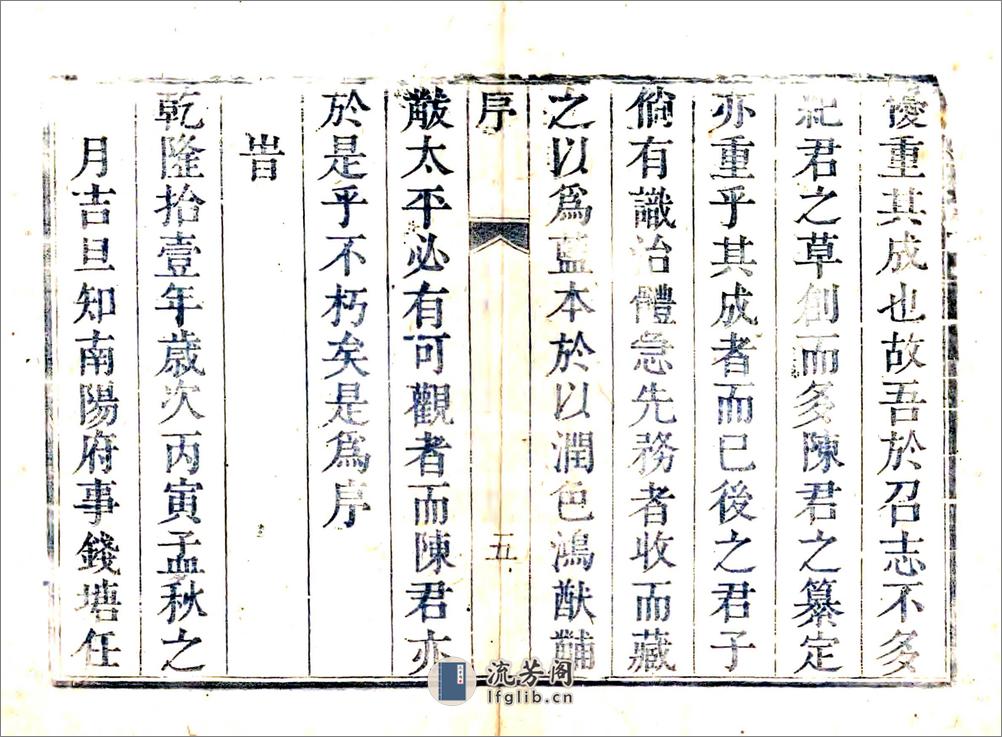 優重其成也故吾於召志不多
紀君之草創而多陳君之纂定
亦重乎其成者而已後之君子
倘有識治體急先務者收而藏
之以爲藍本於以潤色鴻猷黼
序
五
黻太平必有可觀者而陳君亦
於是乎不朽矣是爲序
旹
乾隆拾壹年歲次丙寅孟秋之
月吉旦知南陽府事錢塘任
流芳阁
lfglib.cn